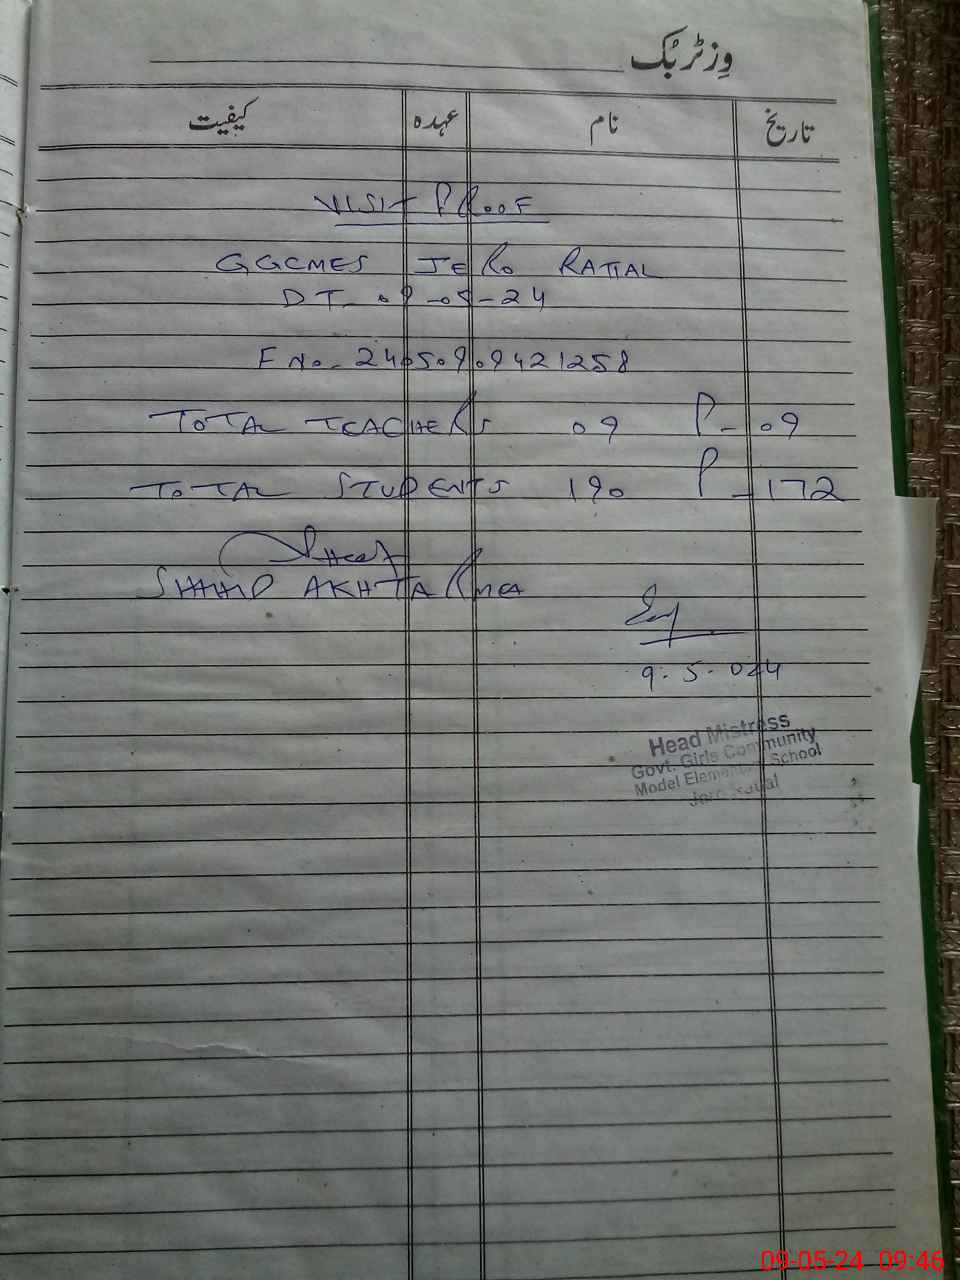 وِزٹر بُک
تاریخ نام عہدہ کیفیت
VISIT PROOF
GGCMES JERO RATIAL
DT- 09-05-24
F No. 24050909421258
TOTAL TEACHERS 09 P- 09
TOTAL STUDENTS 190 P- 172
SHAHID AKHTAR MEA
9.5.024
Head Mistress
Govt. Girls Community
Model Elementary School
09-05-24 09:46